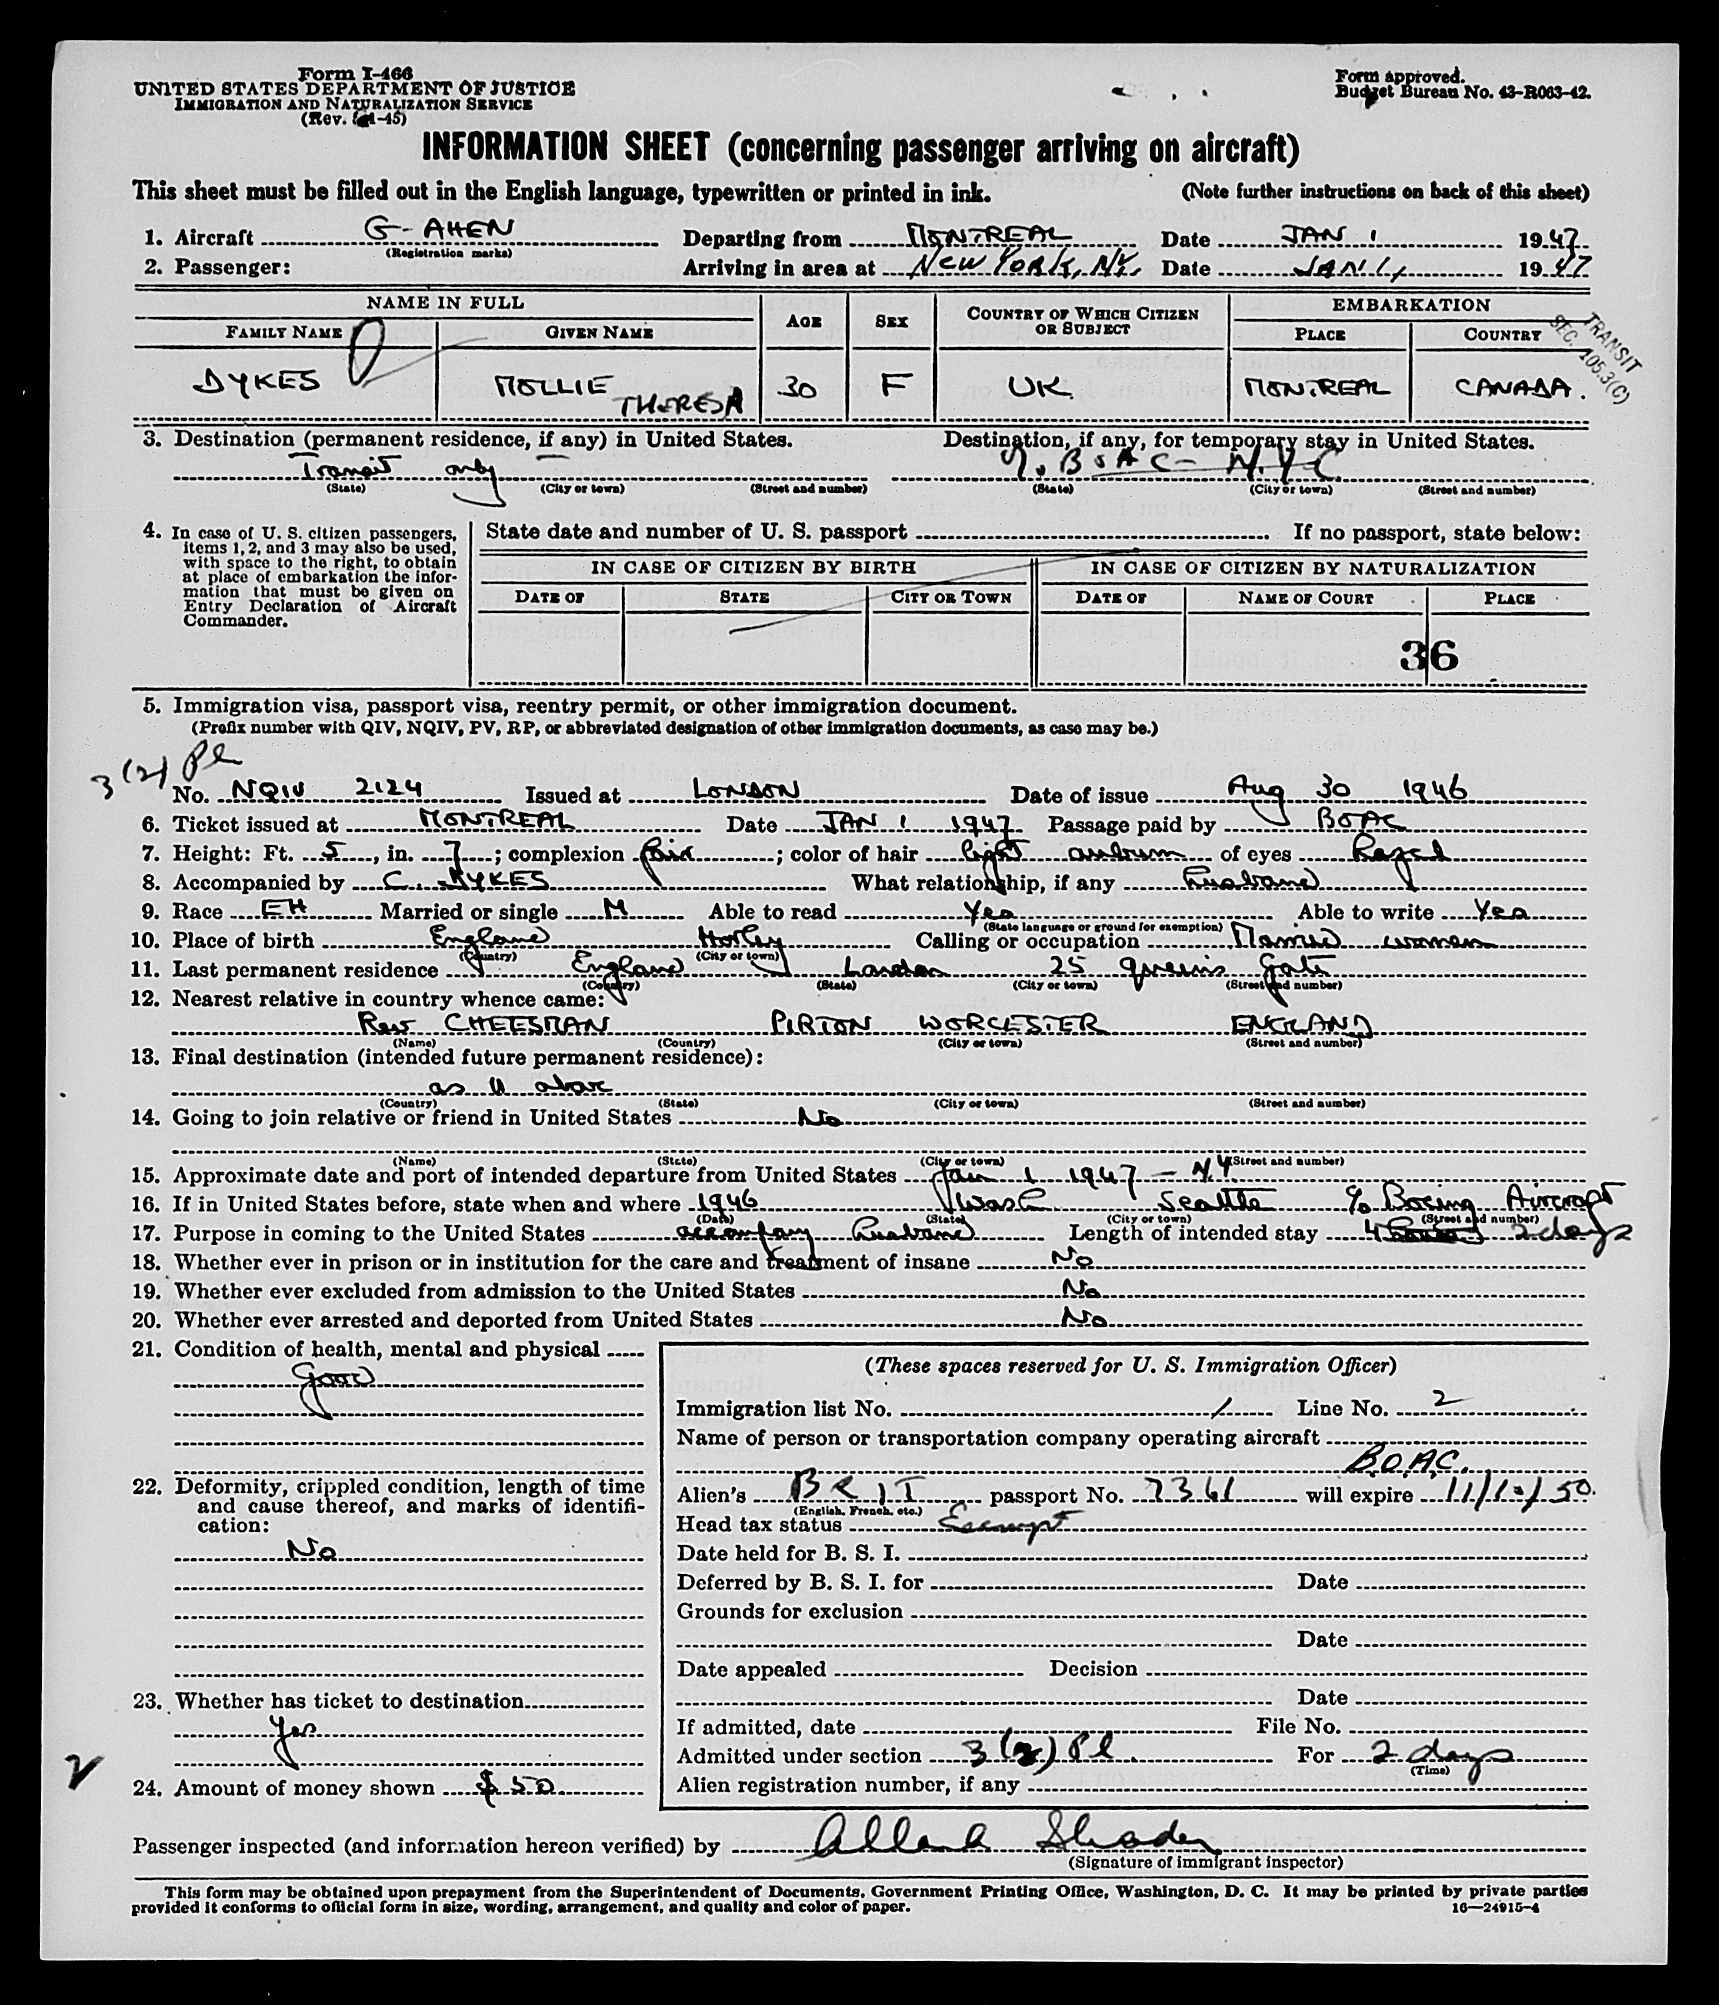 Form I-466
UNITED STATES DEPARTMENT OF JUSTICE
IMMIGRATION AND NATURALIZATION SERVICE
(Rev. -45)
Form approved.
Budget Bureau No. 43-R063-42.
INFORMATION SHEET (concerning passenger arriving on aircraft)
This sheet must be filled out in the English language, typewritten or printed in ink. (Note further instructions on back of this sheet)
1. Aircraft G-AHEN Departing from MONTREAL Date JAN 1 1947
(Registration marks)
2. Passenger: Arriving in area at NEW YORK, NY. Date JAN 1, 1947
NAME IN FULL AGE SEX COUNTRY OF WHICH CITIZEN OR SUBJECT EMBARKATION
FAMILY NAME GIVEN NAME PLACE COUNTRY
TRANSIT
SEC. 105.3(C)
DYKES MOLLIE THERESA 30 F UK. MONTREAL CANADA.
3. Destination (permanent residence, if any) in United States. Destination, if any, for temporary stay in United States.
Transit only BOAC - N.Y.C
(State) (City or town) (Street and number) (State) (City or town) (Street and number)
4. In case of U. S. citizen passengers, items 1, 2, and 3 may also be used, with space to the right, to obtain at place of embarkation the information that must be given on Entry Declaration of Aircraft Commander.
State date and number of U. S. passport If no passport, state below:
IN CASE OF CITIZEN BY BIRTH IN CASE OF CITIZEN BY NATURALIZATION
DATE OF STATE CITY OR TOWN DATE OF NAME OF COURT PLACE
36
5. Immigration visa, passport visa, reentry permit, or other immigration document.
(Prefix number with QIV, NQIV, PV, RP, or abbreviated designation of other immigration documents, as case may be.)
3(2) Pl
No. NQIV 2124 Issued at LONDON Date of issue Aug 30 1946
6. Ticket issued at MONTREAL Date JAN 1 1947 Passage paid by BOAC
7. Height: Ft. 5, in. 7; complexion fair; color of hair light auburn of eyes Hazel
8. Accompanied by C. DYKES What relationship, if any Husband
9. Race EH Married or single M Able to read Yes Able to write Yes
(State language or ground for exemption)
10. Place of birth England Horley Calling or occupation Married woman
(Country) (City or town)
11. Last permanent residence England London 25 Queens Gate
(Country) (State) (City or town) (Street and number)
12. Nearest relative in country whence came:
Rev CHEESMAN PIRTON WORCESTER ENGLAND
(Name) (Country) (City or town) (Street and number)
13. Final destination (intended future permanent residence):
as 11 above
(Country) (State) (City or town) (Street and number)
14. Going to join relative or friend in United States No
(Name) (State) (City or town) (Street and number)
15. Approximate date and port of intended departure from United States Jan 1 1947 - N.Y.
16. If in United States before, state when and where 1946 Wash Seattle % Boeing Aircraft
(Date) (State) (City or town) (Street and number)
17. Purpose in coming to the United States accompany husband Length of intended stay 4 2 days
18. Whether ever in prison or in institution for the care and treatment of insane No
19. Whether ever excluded from admission to the United States No
20. Whether ever arrested and deported from United States No
21. Condition of health, mental and physical
Good
22. Deformity, crippled condition, length of time and cause thereof, and marks of identification:
No
23. Whether has ticket to destination
Yes
2
24. Amount of money shown $50
(These spaces reserved for U. S. Immigration Officer)
Immigration list No. 1 Line No. 2
Name of person or transportation company operating aircraft
B.O.A.C.
Alien's BRIT passport No. 7361 will expire 11/10/50.
(English, French, etc.)
Head tax status Exempt
Date held for B. S. I.
Deferred by B. S. I. for Date
Grounds for exclusion
Date
Date appealed Decision
Date
If admitted, date File No.
Admitted under section 3(2) Pl. For 2 days
(Time)
Alien registration number, if any
Passenger inspected (and information hereon verified) by
(Signature of immigrant inspector)
This form may be obtained upon prepayment from the Superintendent of Documents, Government Printing Office, Washington, D. C. It may be printed by private parties
provided it conforms to official form in size, wording, arrangement, and quality and color of paper. 16—24915-4